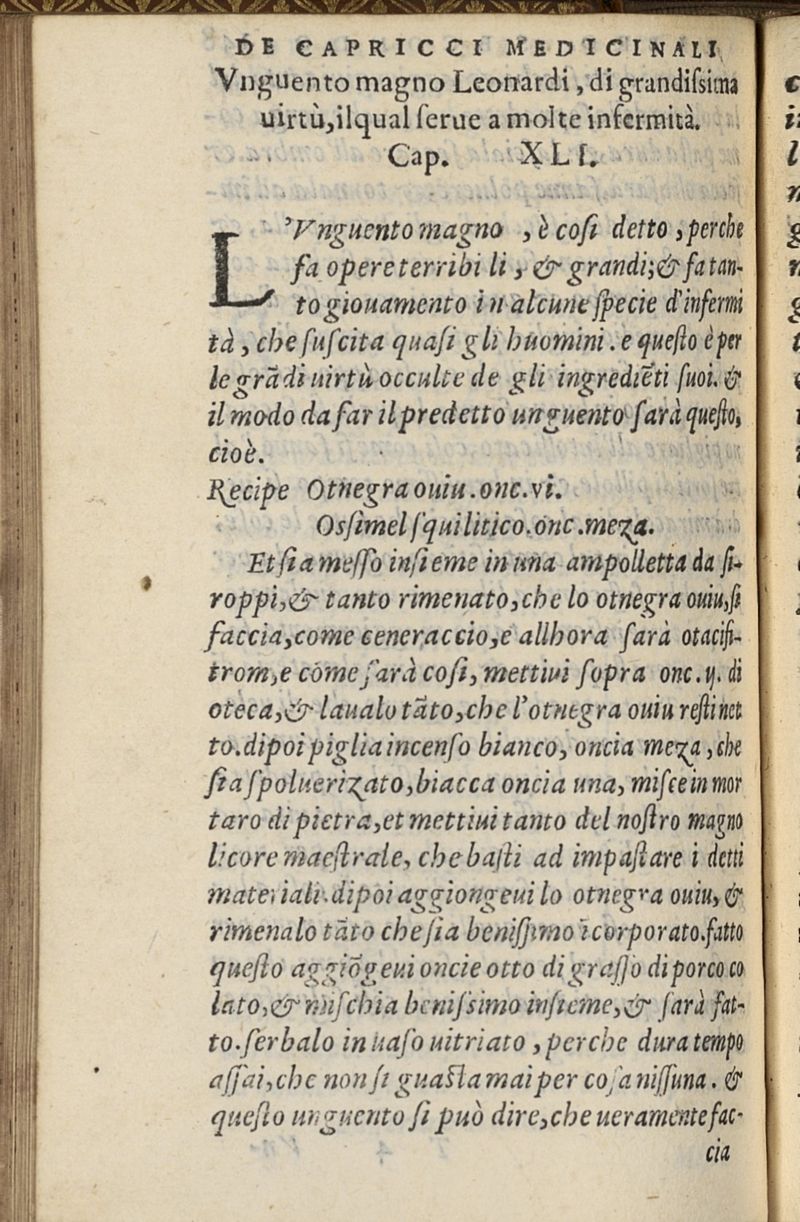 DE CAPRICCI MEDICINALI
Vnguento magno Leonardi, di grandiſsima
uirtù, ilqual ſerue a molte infermità.
Cap. XLI.
L'Vnguento magno, è coſi detto, perche
fa opere terribi li, & grandi; & fa tan-
to giouamento in alcune ſpecie d'infermi
tà, che ſuſcita quaſi gli huomini. e queſto è per
le grãdi uirtù occulte de gli ingrediẽti ſuoi. &
il modo da far il predetto unguento ſarà queſto,
cioè.
Recipe Otnegra ouiu. onc. vi.
Oſsimel ſquilitico. onc. meza.
Et ſia meſſo inſieme in una ampolletta da ſi-
roppi, & tanto rimenato, che lo otnegra ouiu, ſi
faccia, come ceneraccio, e allhora ſarà otaciſi-
trom, e come ſarà coſi, mettiui ſopra onc. ij. di
oteca, & laualo tãto, che l'otnegra ouiu reſti net
to. dipoi piglia incenſo bianco, oncia meza, che
ſia ſpoluerizato, biacca oncia una, miſce in mor
taro di pietra, et mettiui tanto del noſtro magno
licore maeſtrale, che baſti ad impaſtare i detti
materiali. dipoi aggiongeui lo otnegra ouiu, &
rimenalo tãto che ſia beniſſimo ĩcorporato. fatto
queſto aggiõgeui oncie otto di graſſo di porco co
lato, & miſchia beniſsimo inſieme, & ſarà fat-
to. ſerbalo in uaſo uitriato, perche dura tempo
aſſai, che non ſi guaſta mai per coſa niſſuna. &
queſto unguento ſi può dire, che ueramente fac-
cia